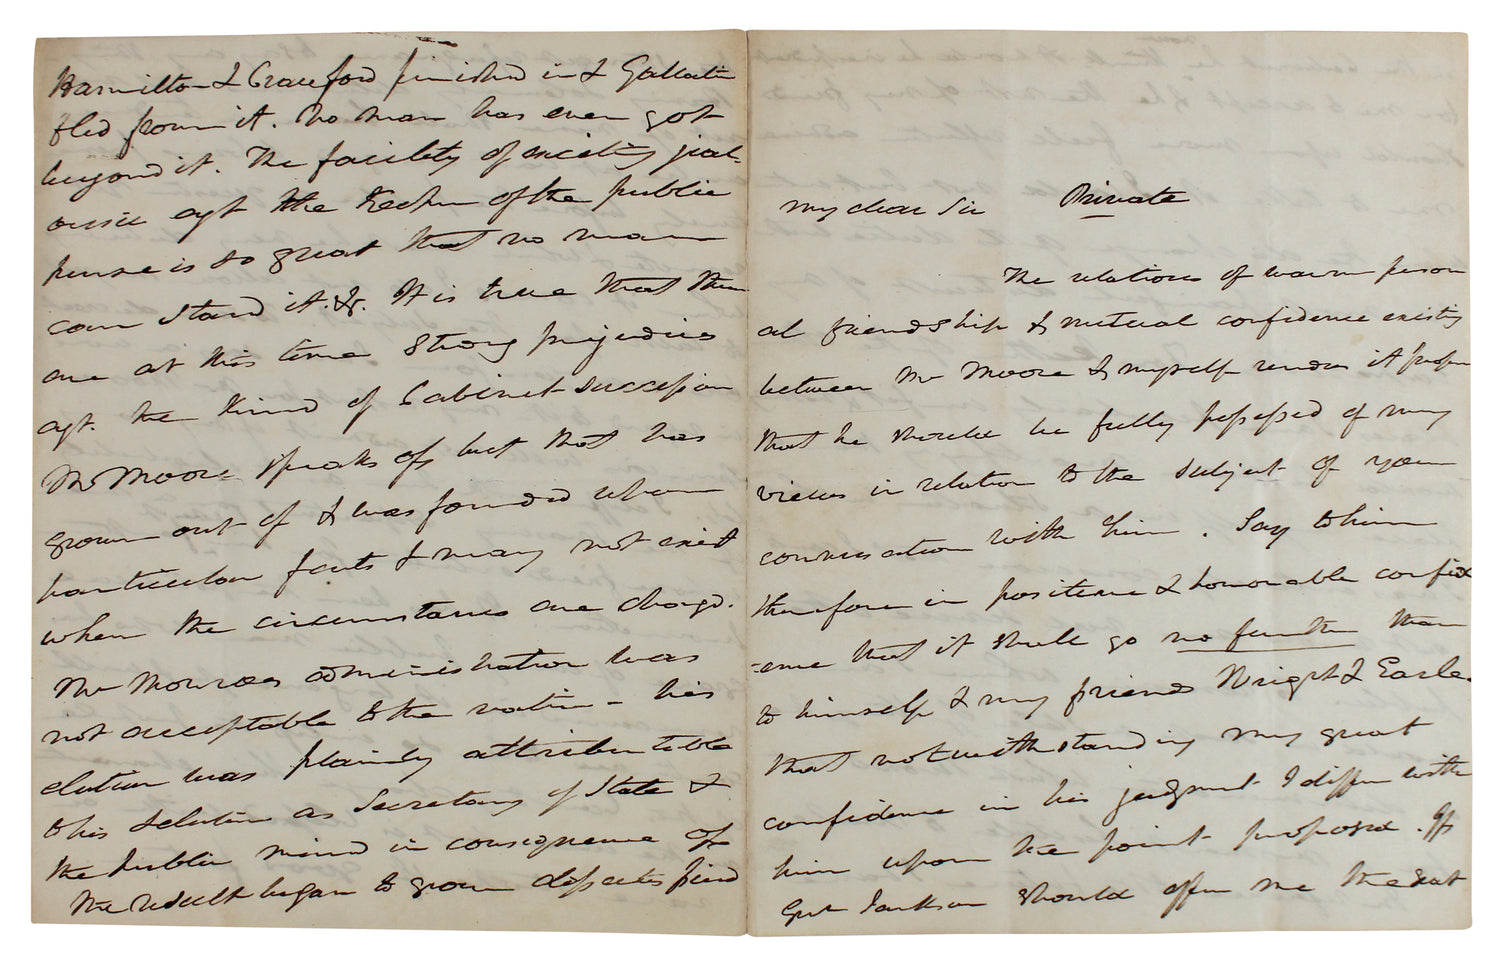 Hamilton & Crawford finished in & Gallatin
fled from it. No man has ever got
beyond it. The facility of exciting jeal-
ousies agt the Keeper of the public
purse is so great that no man
can stand it. &c. It is true that there
are at this time strong prejudices
agt. the kind of Cabinet succession
Mr Moore speaks of but that has
grown out of & was founded upon
particular facts & may not exist
when the circumstances are changd.
Mr Monroes administration was
not acceptable to the nation - his
election was plainly attributable
to his selection as Secretary of State &
the public mind in consequence of
the result began to grow dissatisfied
My dear Sir Private
The relations of warm person
al friendship & mutual confidence existing
between Mr Moore & myself renders it proper
that he should be fully possessed of my
views in relation to the subject of your
conversation with him. Say to him
therefore in positive & honorable confid
-ence that it shall go no further than
to himself & my friends Wright & Earle.
that notwithstanding my great
confidence in his judgment I differ with
him upon the point proposed. If
Genl Jackson should offer me the seat